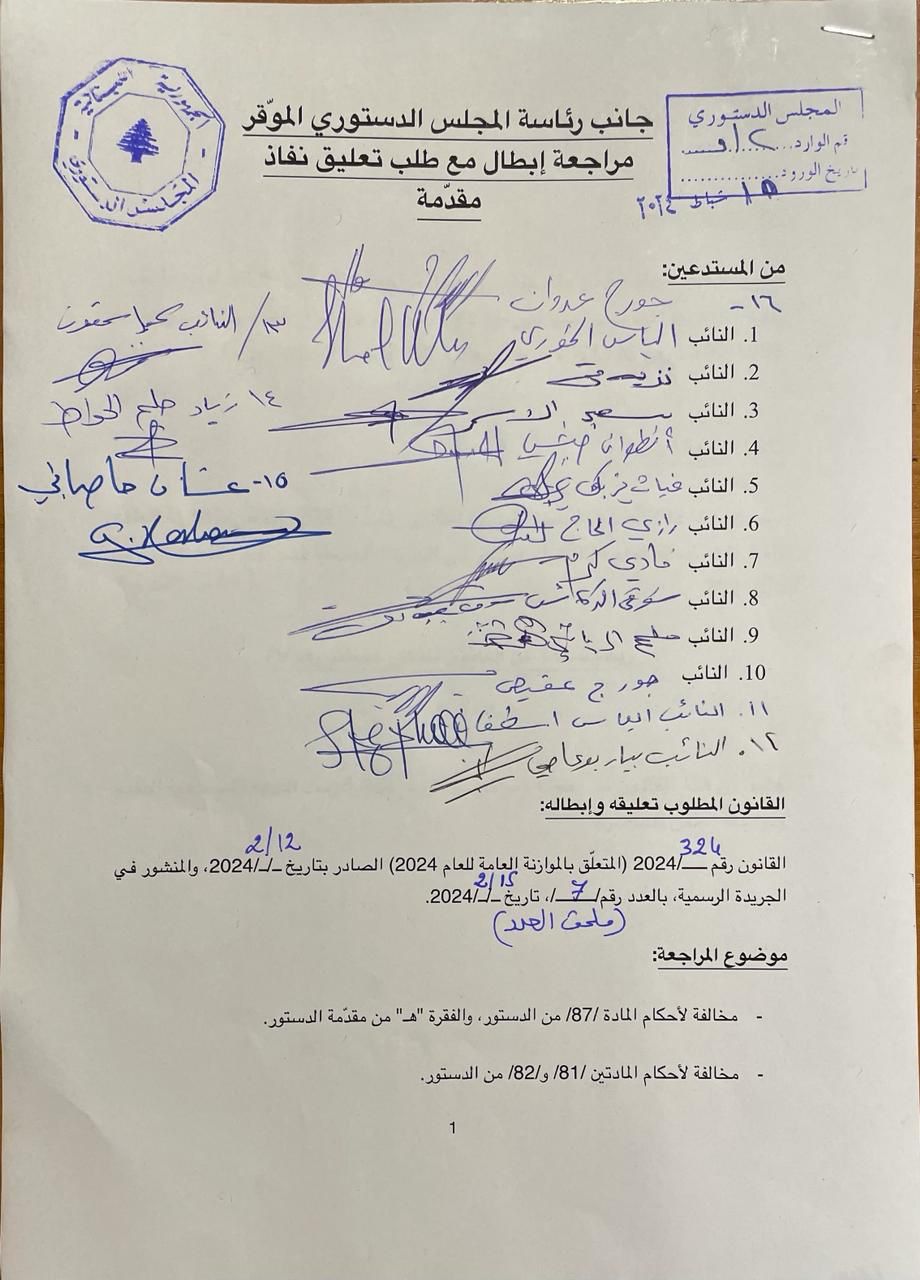 الجمهورية اللبنانية
المجلس الدستوري
المجلس الدستوري
قم الوارد
تاريخ الورود
١٥ شباط ٢٠٢٤
جانب رئاسة المجلس الدستوري الموّقر
مراجعة إبطال مع طلب تعليق نفاذ
مقدّمة
من المستدعين:
١٦- جورج عدوان
1. النائب الياس الخوري
2. النائب نزيه متى
3. النائب سعيد الاسمر
4. النائب أنطوان حبشي
5. النائب غياث يزبك
6. النائب رازي الحاج
7. النائب فادي كرم
8. النائب شوقي الدكاش
9. النائب ملحم الرياشي
10. النائب جورج عقيص
١١. النائب الياس اسطفان
١٢. النائب بيار بوعاصي
١٣/ النائب
١٤ زياد حواط
١٥- غسان حاصباني
القانون المطلوب تعليقه وإبطاله:
القانون رقم 324/2024 (المتعلّق بالموازنة العامة للعام 2024) الصادر بتاريخ 2/12/2024، والمنشور في
الجريدة الرسمية، بالعدد رقم/7/، تاريخ 2/15/2024.
(ملحق العدد)
موضوع المراجعة:
- مخالفة لأحكام المادة /87/ من الدستور، والفقرة "هـ" من مقدّمة الدستور.
- مخالفة لأحكام المادتين /81/ و/82/ من الدستور.
1